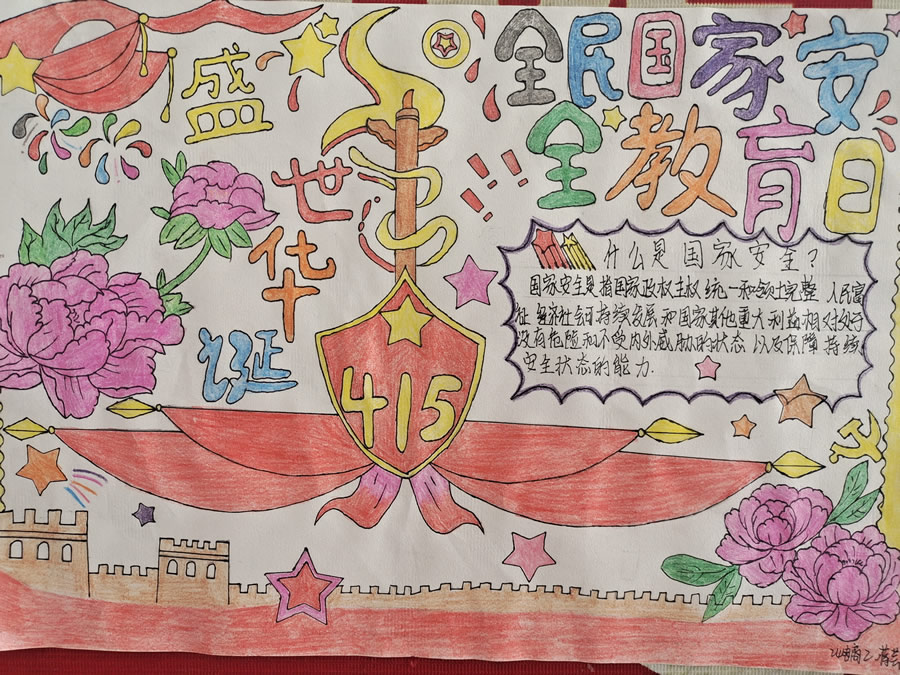 全民国家安
全教育日
盛
世
华
诞
什么是国家安全?
国家安全是指国家政权主权统一和领土完整 人民富
祉 经济社会可持续发展和国家其他重大利益相对处于
没有危险和不受内外威胁的状态 以及保障持续
安全状态的能力.
415